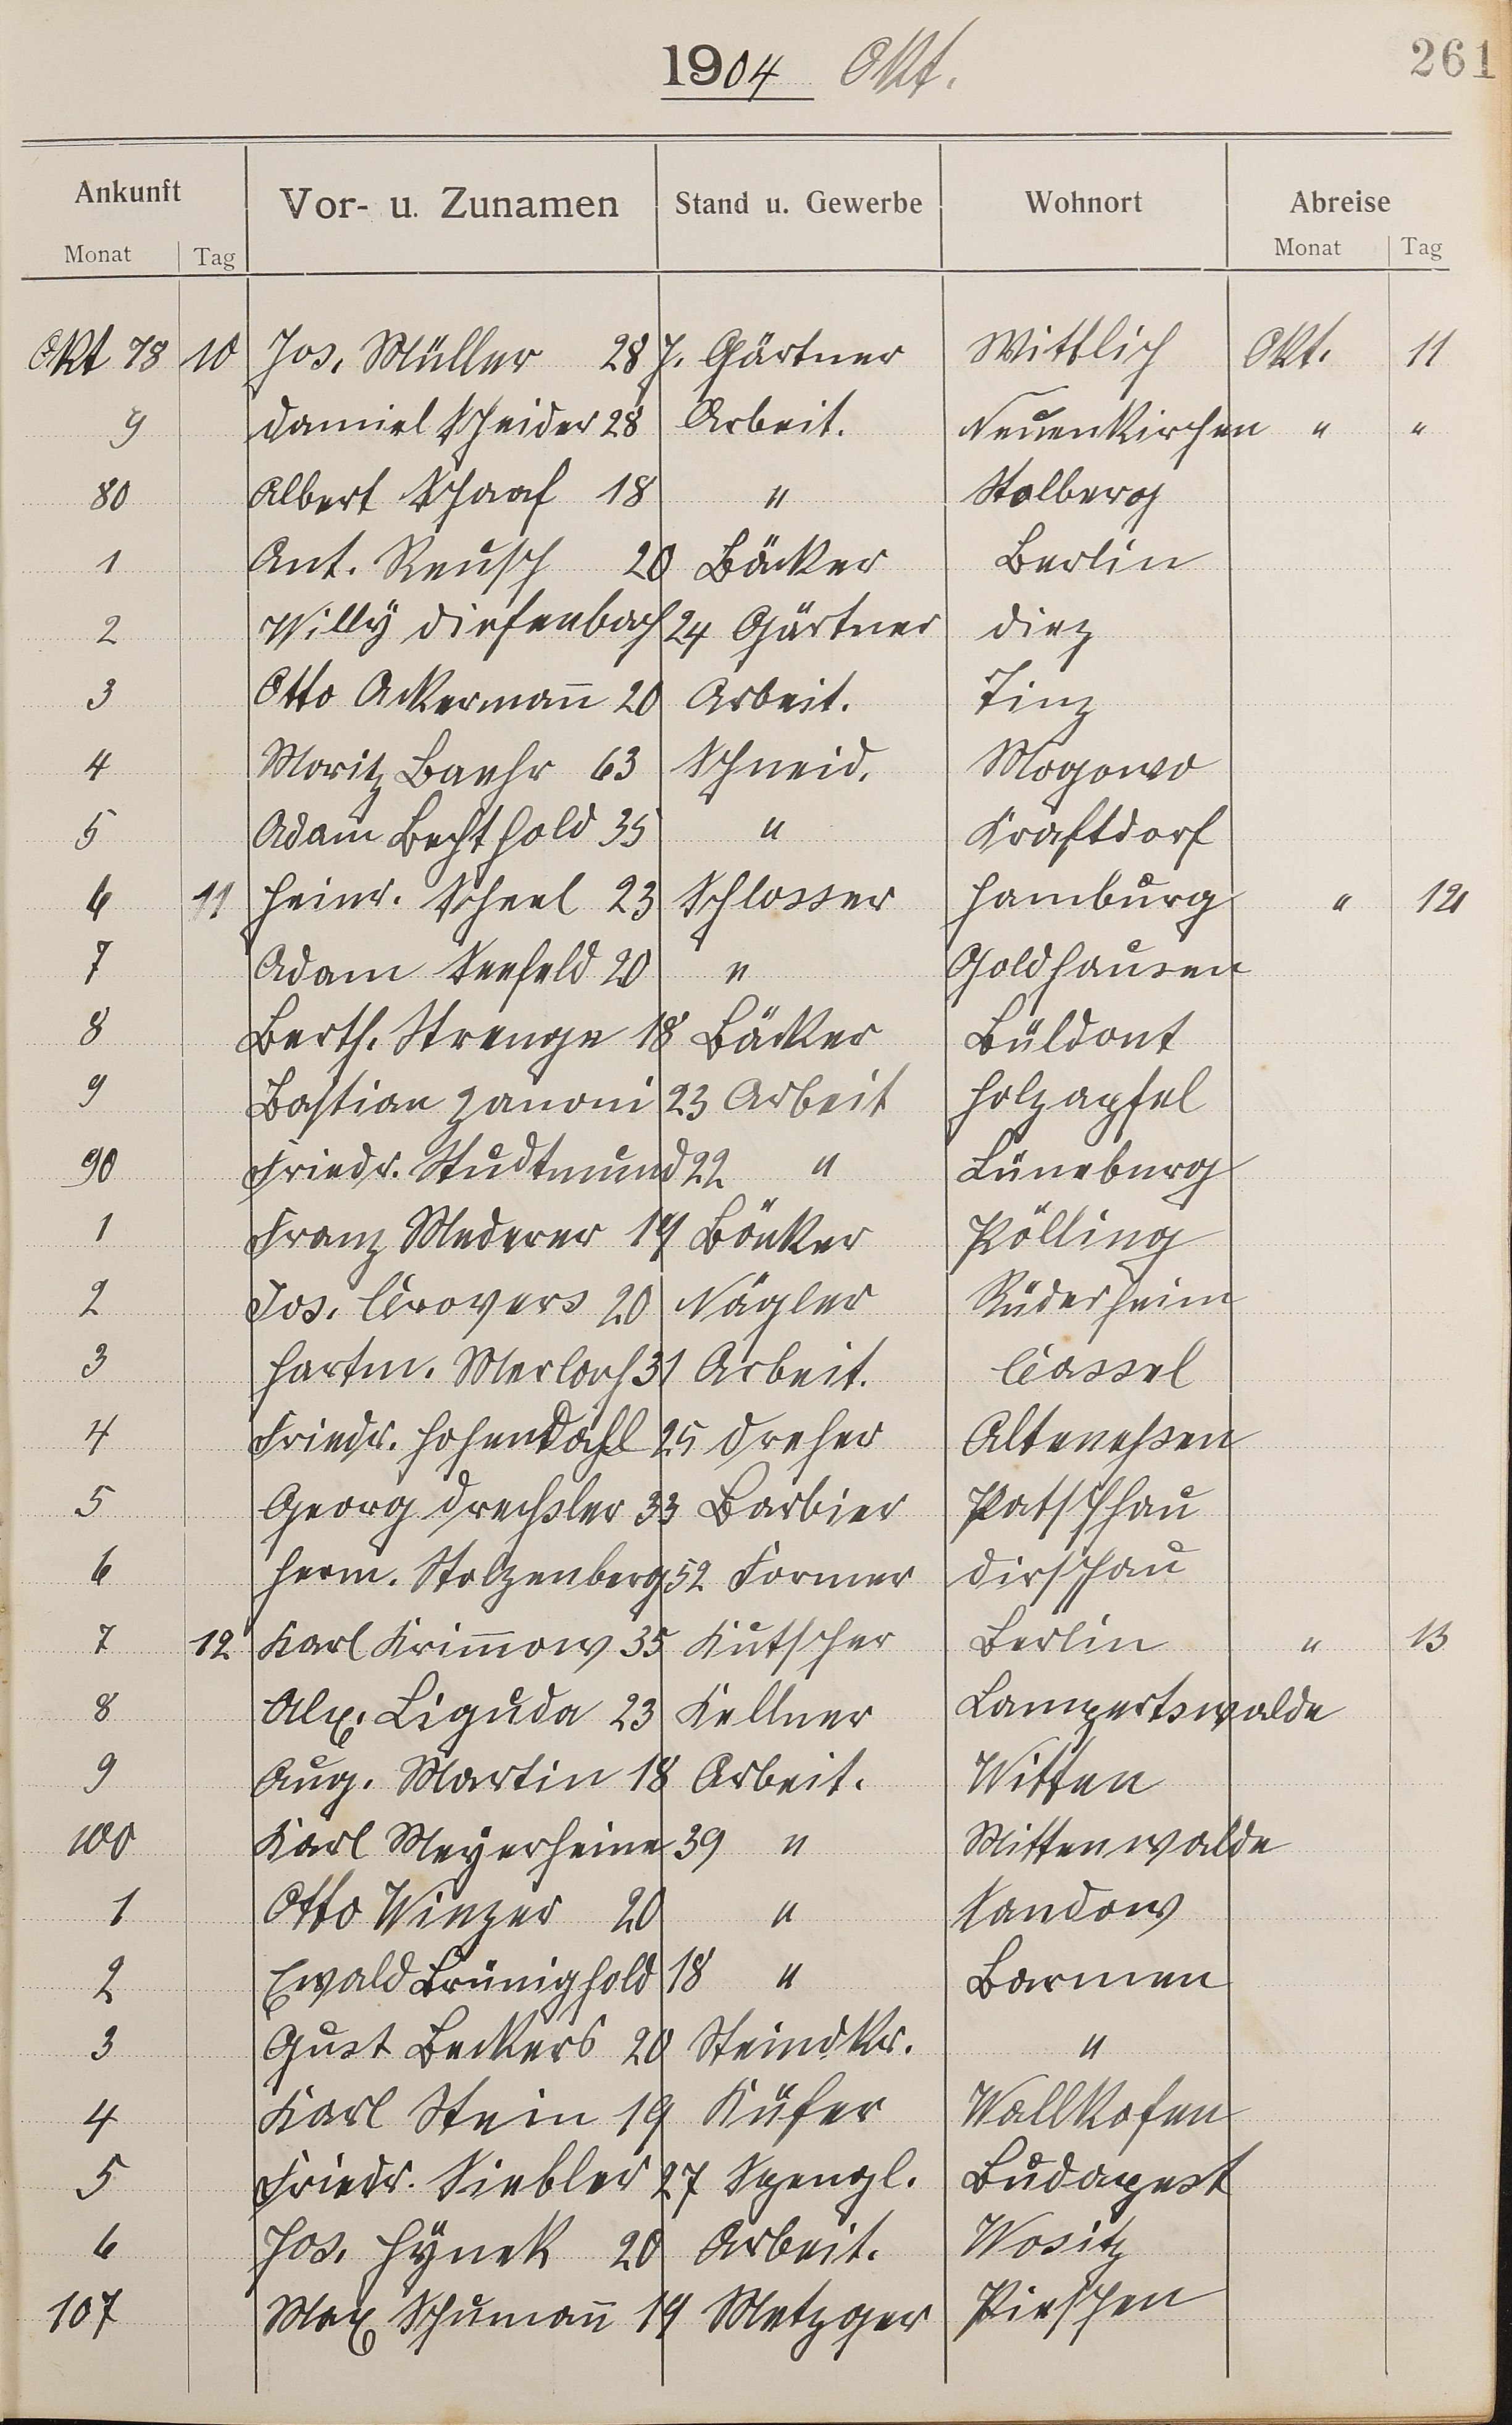 1904 Okt.
261
Ankunft Vor- u. Zunamen Stand u. Gewerbe Wohnort Abreise
Monat Tag Monat Tag
Okt 78 10 Jos. Müller 28 J. Gärtner Wittlich Okt. 11
9 Daniel Scheider 28 Arbeit. Neuenkirchen " "
80 Albert Schaaf 18 " Stolberg
1 Ant. Reusch 20 Bäcker Berlin
2 Willÿ Diefenbach 24 Gärtner Diez
3 Otto Ackermañ 20 Arbeit. Tinz
4 Moritz Baehr 63 Schneid. Mogowo
5 Adam Bechthold 35 " Kraftdorf
6 11 Heinr. Scheel 23 Schlosser Hamburg " 12
7 Adam Seefeld 20 " Goldhausen
8 Berth. Strenge 18 Bäcker
9 Bastian Zanoni 23 Arbeit Holzapfel
90 Friedr. Studtmund 22 " Lüneburg
1 Franz Mederer 19 Bäcker Pölling
2 Jos. 20 Nägler Rüdesheim
3 Hartm. Merlach 31 Arbeit. Cassel
4 Friedr. Hohendahl 25 Dreher Altenessen
5 Georg Drechsler 33 Barbier Patschkau
6 Herm. Stolzenberg 52 Former Dirschau
7 12 Karl Krim̄ow 35 Kutscher Berlin " 13
8 Alex. Liguda 23 Kellner Lampertswalde
9 Aug. Martin 18 Arbeit. Witten
100 Karl Meÿerheine 39 " Mittenwalde
1 Otto Winzer 20 " Sandow
2 Ewald Brünighold 18 " Barmen
3 Gust Beckers 20 Steindkr. "
4 Karl Stein 19 Küfer Wallkofen
5 Friedr. Siebler 27 Spengl. Budapest
6 Jos. Hÿnek 20 Arbeit. Wositz
107 Max Schumañ 19 Metzger Pieschen